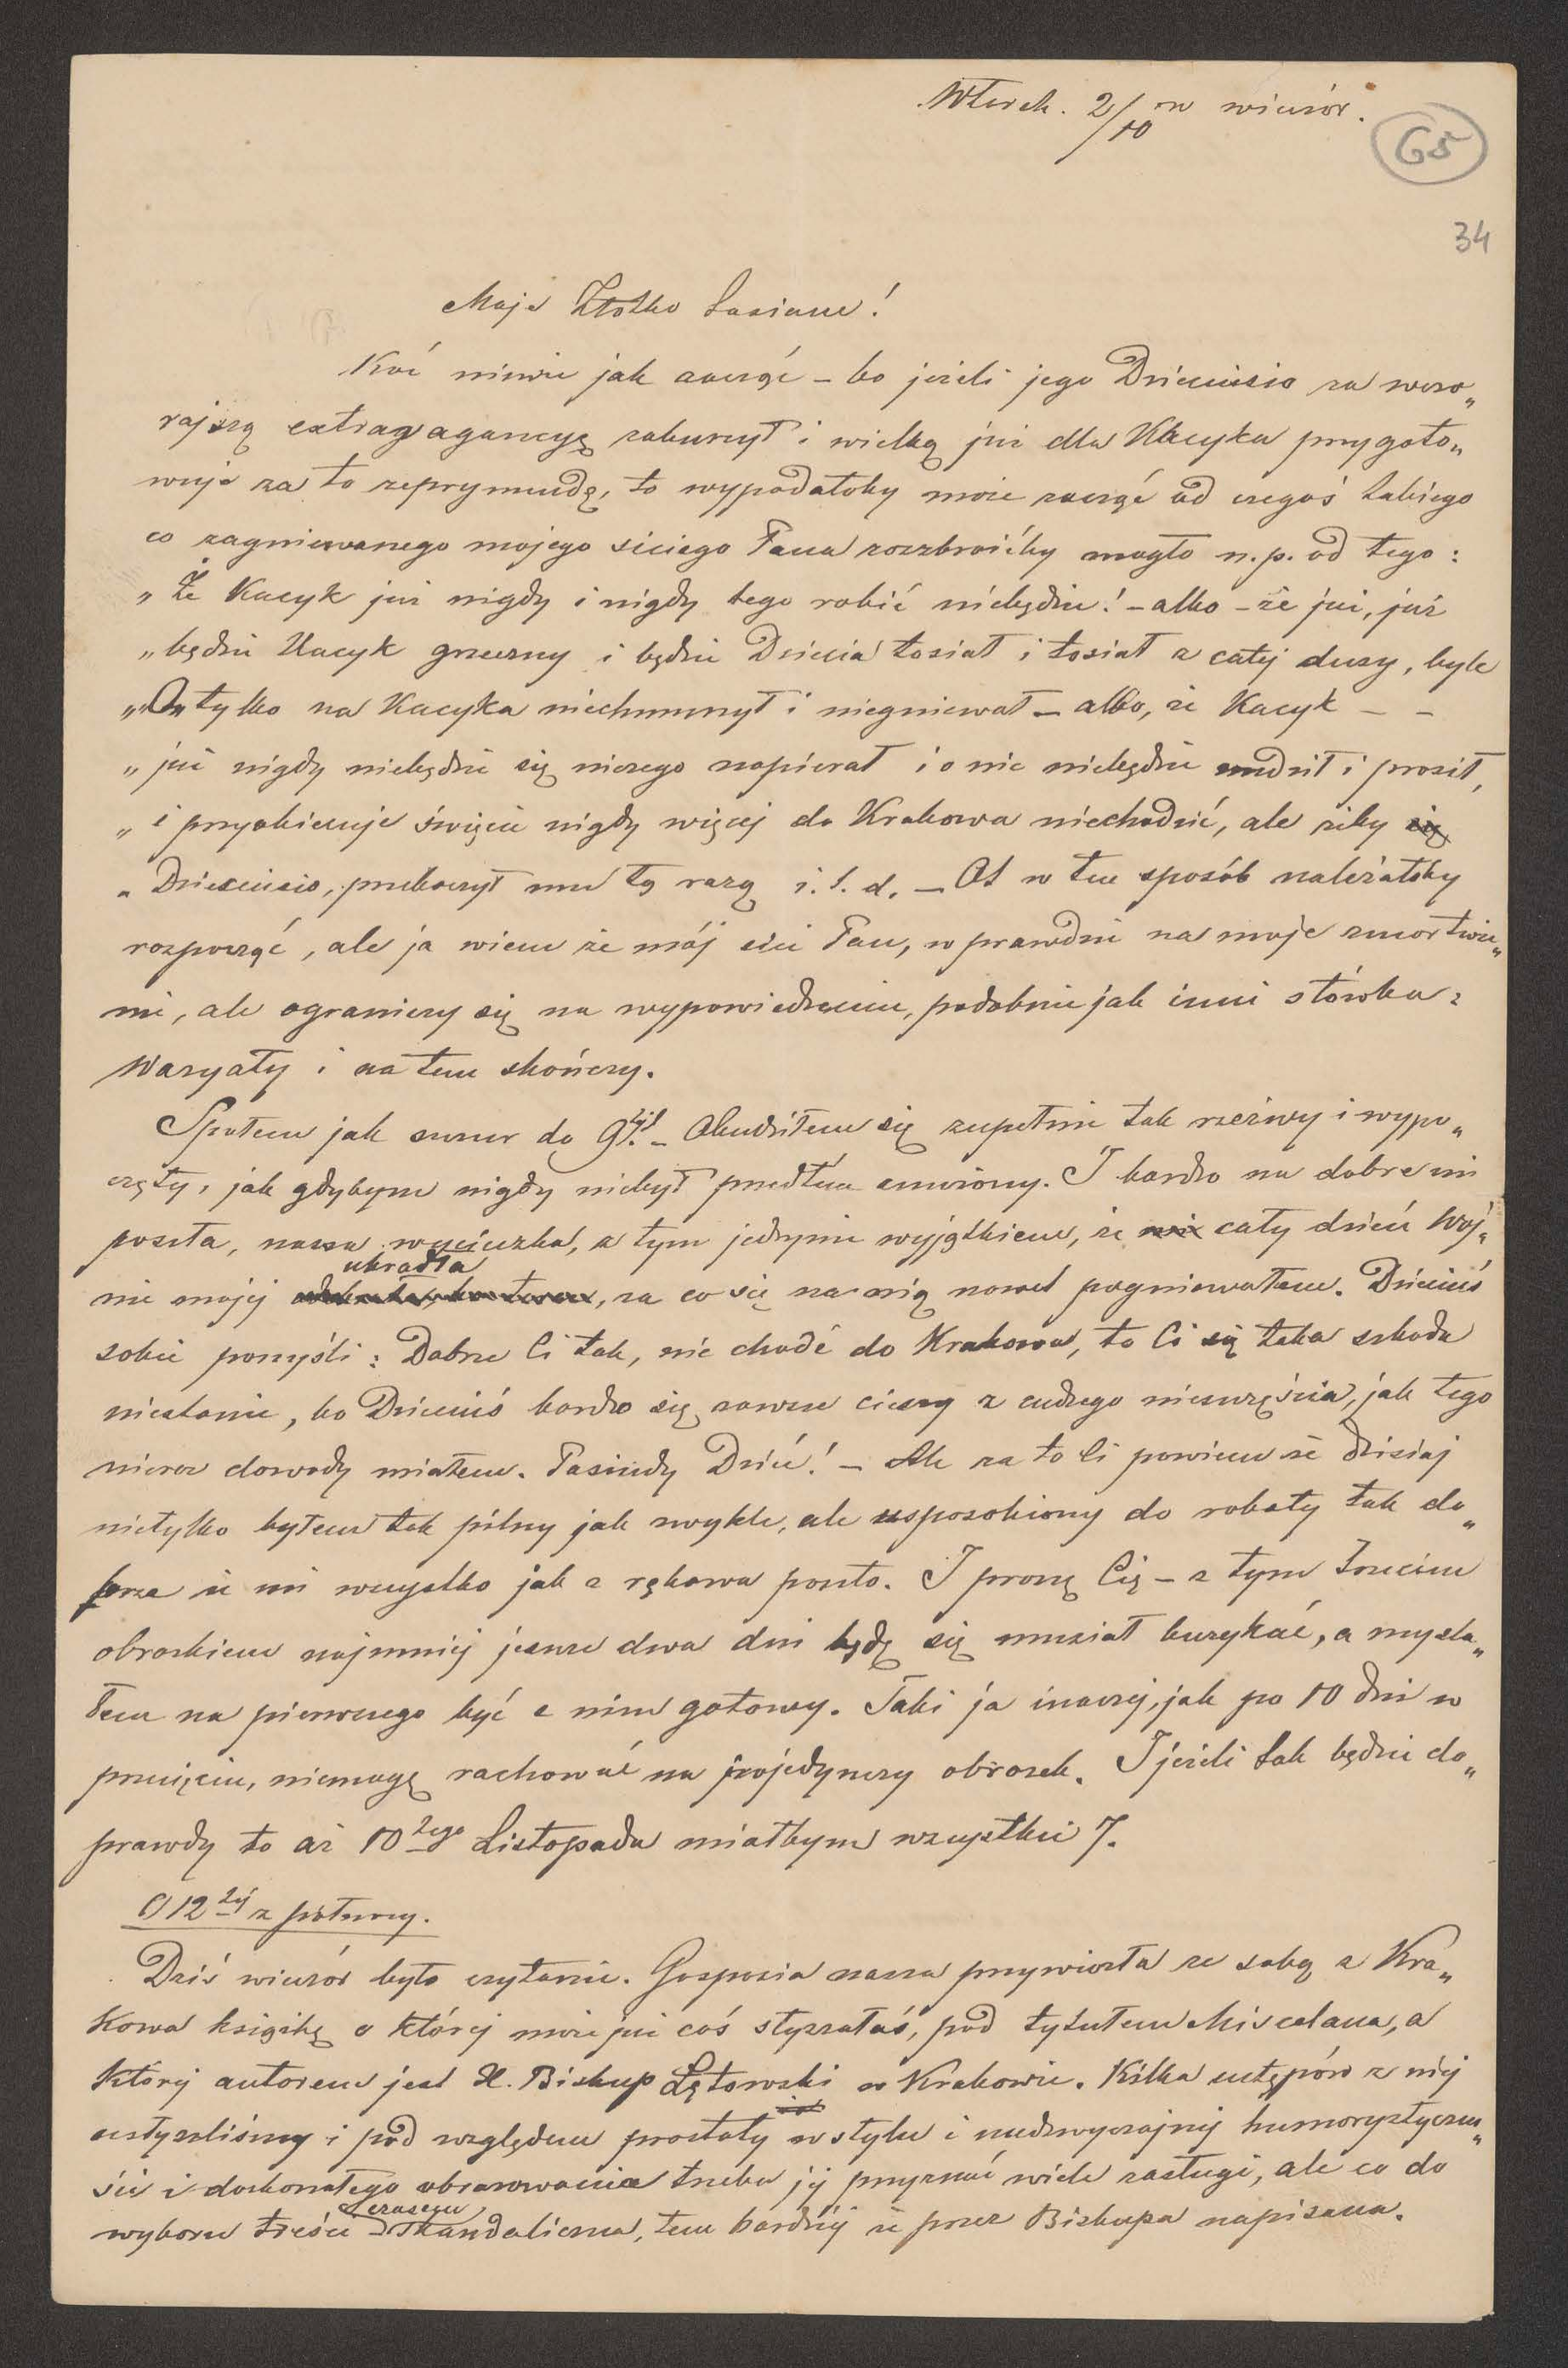 Wtorek. 2/10 w wieczór.
65
34
Moje Złotko Łasiane!
Kóć niewie jak zacząć – bo jeżeli jego Dzieciusio za wczo„
rajszą extrawagancyę zaburczył i wielką już dla Kacyka przygoto„
wuje za to reprymendę, to wypadałoby może zacząć od czegoś takiego
co zagniewanego mojego siciego Pana rozzbroićby mogło n.p. od tego:
„Że Kacyk już nigdy i nigdy tego robić niebędzie! – albo – że już, już
„będzie Kacyk grzeczny i będzie Dziecia łosiał i łosiał z całej duszy, byle
„O„ tylko na Kacyka niechmurzył i niegniewał – albo, że Kacyk – –
„już nigdy niebędzie się niczego napierał i o nic niebędzie nudził i prosił,
„i przyobiecuje święcie nigdy więcej do Krakowa niechodzić, ale żeby się
„Dzieciusio, przebaczył mu tą razą i.t.d. – Ot w ten sposób należałoby
rozpocząć, ale ja wiem że mój sici Pan, wprawdzie na moje zmartwie„
nie, ale ograniczy się na wypowiedzeniu, podobnie jak inni słówka:
Waryaty i na tem skończy.
Spałem jak suseur do 9tej. – Obudziłem się zupełnie tak rzeźwy i wypo„
częty, jak gdybym nigdy niebył przedtem zmęczony. I bardzo na dobre mi
poszła, nasza wycieczka, z tym jednym wyjątkiem, że cały dzień Woj„
nie mojej ukradła, za co się na nią nawet pogniewałem. Dzieciuś
sobie pomyśli: Dobrze Ci tak, nie chodź do Krakowa, to Ci się taka szkoda
niestanie, bo Dzieciuś bardzo się zawsze cieszy z cudzego nieszczęścia, jak tego
nieraz dowody miałem. Pasiudy Dzieć! – Ale za to Ci powiem że dzisiaj
nietylko byłem tak pilny jak zwykle, ale usposobiony do roboty tak do„
brze że mi wszystko jak z rękawa poszło. I proszę Cię – z tym trzecim
obrazkiem najmniej jeszcze dwa dni będę się musiał burykać, a myśla„
łem na pierwszego być z nim gotowy. Taki ja inaczej, jak po 10 dni w
przecięciu, niemogę rachować na pojedynczy obrazek. I jeżeli tak będzie do„
prawdy to aż 10tego Listopada miałbym wszystkie 7.
O 12tej z północy.
Dziś wieczór było czytanie. Gosposia nasza przywiozła ze sobą z Kra„
kowa książkę o której może już coś słyszałaś, pod tytułem Miscelana, a
której autorem jest X. Biskup Łętowski w Krakowie. Kilka ustępów z niej
usłyszeliśmy i pod względem prostoty w stylu i nadzwyczajnej humorystyczno„
ści i doskonałego obrazowania trzeba jej przyznać wiele zasługi, ale co do
wyboru treści czasem skandaliczna, tem bardziej że przez Biskupa napisana.